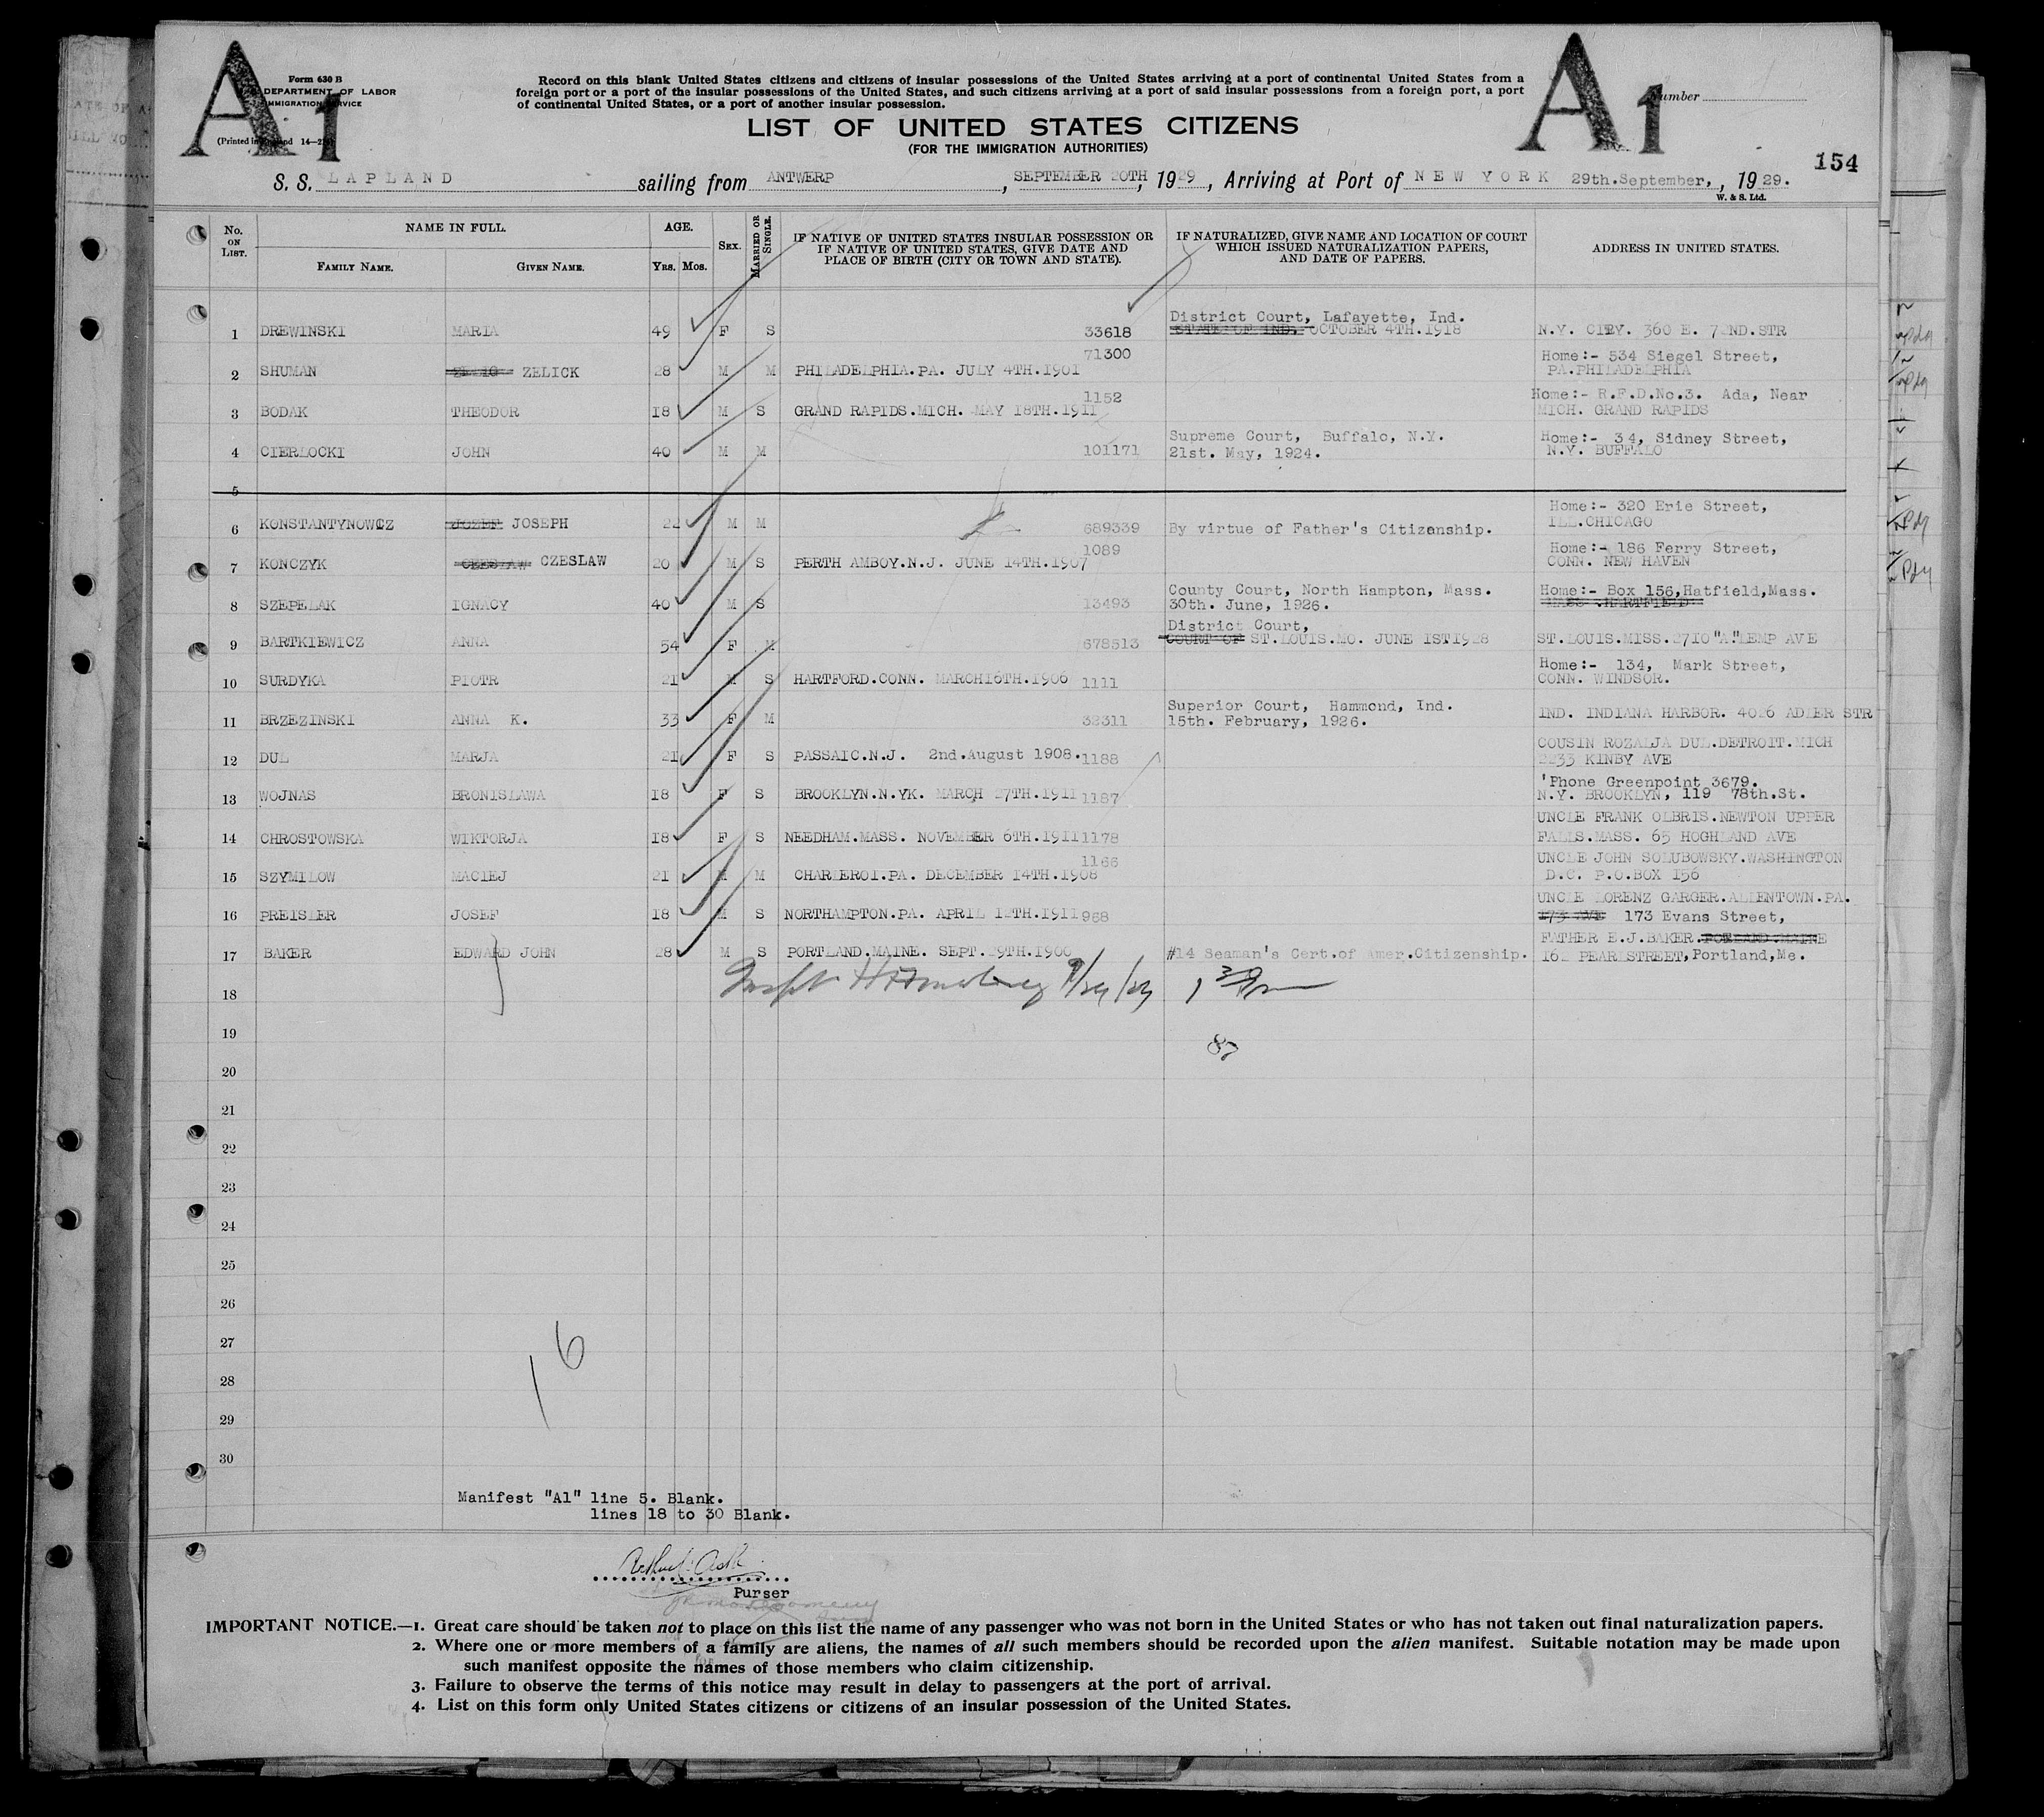 A1
Form 630 B
DEPARTMENT OF LABOR
IMMIGRATION SERVICE
(Printed in England 14—2
Record on this blank United States citizens and citizens of insular possessions of the United States arriving at a port of continental United States from a
foreign port or a port of the insular possessions of the United States, and such citizens arriving at a port of said insular possessions from a foreign port, a port
of continental United States, or a port of another insular possession.
A1
Number
LIST OF UNITED STATES CITIZENS
(FOR THE IMMIGRATION AUTHORITIES)
154
S. S. LAPLAND sailing from ANTWERP, SEPTEMBER 20TH, 1929, Arriving at Port of NEW YORK 29th.September, , 1929.
W. & S. Ltd.
No. ON LIST. NAME IN FULL. FAMILY NAME. GIVEN NAME. AGE. YRS. MOS. SEX. MARRIED OR SINGLE. IF NATIVE OF UNITED STATES INSULAR POSSESSION OR IF NATIVE OF UNITED STATES, GIVE DATE AND PLACE OF BIRTH (CITY OR TOWN AND STATE). IF NATURALIZED, GIVE NAME AND LOCATION OF COURT WHICH ISSUED NATURALIZATION PAPERS, AND DATE OF PAPERS. ADDRESS IN UNITED STATES.
District Court, Lafayette, Ind.
1 DREWINSKI MARIA 49 F S 33618 STATE OF IND. OCTOBER 4TH.1918 N.Y. CITY. 360 E. 72ND.STR
71300 Home:- 534 Siegel Street,
2 SHUMAN ZELICK 28 M M PHILADELPHIA.PA. JULY 4TH.1901 PA.PHILADELPHIA
1152 Home:- R.F.D.No.3. Ada, Near
3 BODAK THEODOR 18 M S GRAND RAPIDS.MICH. MAY 18TH.1911 MICH. GRAND RAPIDS
Supreme Court, Buffalo, N.Y. Home:- 34, Sidney Street,
4 CIERLOCKI JOHN 40 M M 101171 21st. May, 1924. N.Y. BUFFALO
5
Home:- 320 Erie Street,
6 KONSTANTYNOWICZ JOZEF JOSEPH 22 M M 689339 By virtue of Father's Citizenship. ILL.CHICAGO
1089 Home:- 186 Ferry Street,
7 KONCZYK CZESLAW 20 M S PERTH AMBOY.N.J. JUNE 14TH.1907 CONN. NEW HAVEN
County Court, North Hampton, Mass. Home:- Box 156,Hatfield,Mass.
8 SZEPELAK IGNACY 40 M S 13493 30th. June, 1926. MASS .HARTFIELD
District Court,
9 BARTKIEWICZ ANNA 54 F M 678513 COURT OF ST.LOUIS.MO. JUNE 1ST1928 ST.LOUIS.MISS.2710"A."LEMP AVE
Home:- 134, Mark Street,
10 SURDYKA PIOTR 21 M S HARTFORD.CONN. MARCH16TH.1906 1111 CONN. WINDSOR.
Superior Court, Hammond, Ind.
11 BRZEZINSKI ANNA K. 33 F M 32311 15th. February, 1926. IND. INDIANA HARBOR. 4026 ADLER STR
COUSIN ROZALJA DUL.DETROIT.MICH
12 DUL MARJA 21 F S PASSAIC.N.J. 2nd.August 1908. 1188 2233 KINBY AVE
'Phone Greenpoint 3679.
13 WOJNAS BRONISLAWA 18 F S BROOKLYN.N.YK. MARCH 27TH.1911 1187 N.Y. BROOKLYN, 119 78th.St.
UNCLE FRANK OLBRIS.NEWTON UPPER
14 CHROSTOWSKA WIKTORJA 18 F S NEEDHAM.MASS. NOVEMBER 6TH.1911 1178 FALLS.MASS. 65 HOGHLAND AVE
1166 UNCLE JOHN SOLUBOWSKY.WASHINGTON
15 SZYMILOW MACIEJ 21 M M CHARLEROI.PA. DECEMBER 14TH.1908 D.C. P.O.BOX 156
UNCLE LORENZ GARGER.ALLENTOWN.PA.
16 PREISLER JOSEF 18 M S NORTHAMPTON.PA. APRIL 12TH.1911 968 173 AVE 173 Evans Street,
FATHER E.J.BAKER.PORTLAND.MAINE
17 BAKER EDWARD JOHN 28 M S PORTLAND.MAINE. SEPT.29TH.1900 #14 Seaman's Cert.of Amer.Citizenship. 162 PEARL STREET,Portland,Me.
18
19
20
21
22
23
24
25
26
27
16
28
29
30
Manifest "A1" line 5. Blank.
lines 18 to 30 Blank.
Purser
IMPORTANT NOTICE.—1. Great care should be taken not to place on this list the name of any passenger who was not born in the United States or who has not taken out final naturalization papers.
2. Where one or more members of a family are aliens, the names of all such members should be recorded upon the alien manifest. Suitable notation may be made upon
such manifest opposite the names of those members who claim citizenship.
3. Failure to observe the terms of this notice may result in delay to passengers at the port of arrival.
4. List on this form only United States citizens or citizens of an insular possession of the United States.